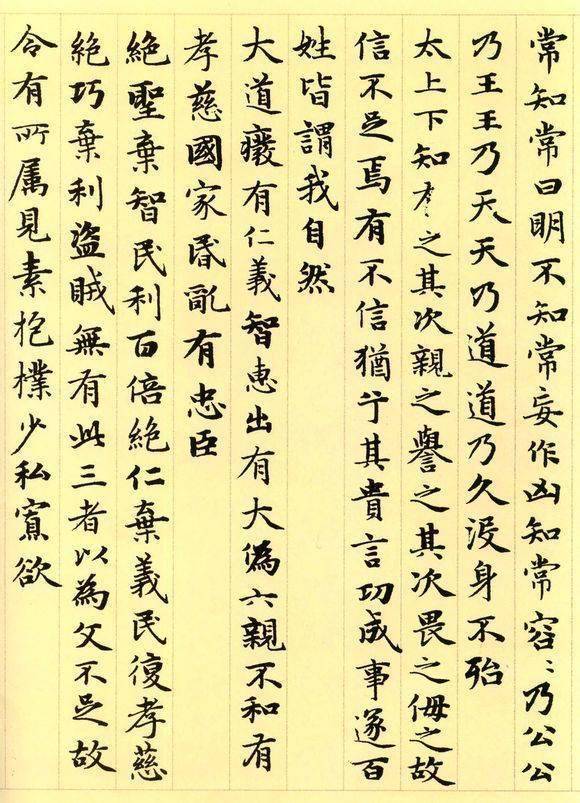 常知常曰明不知常妄作凶知常容〻乃公公
乃王王乃天天乃道道乃久没身不殆
太上下知有之其次親之譽之其次畏之侮之故
信不足焉有不信猶兮其貴言功成事遂百
姓皆謂我自然
大道癈有仁義智惠出有大偽六親不和有
孝慈國家昬亂有忠臣
絕聖棄智民利百倍絕仁棄義民復孝慈
絕巧棄利盜賊無有此三者以為文不足故
令有所屬見素抱樸少私寡欲